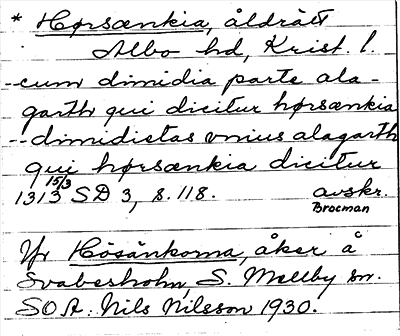 * Hørsænkia, åldrätt
Albo hd, Krist. l.
--cum dimidia parte ala-
garth qui dicitur hørsænkia
--dimidietas vnius alagarth
qui hørsænkia dicitur
15/3
1313 SD 3, s. 118. avskr.
Brocman
Jfr Hösänkorna, åker å
Svabesholm, S. Mellby sn.
SOA: Nils Nilsson 1930.